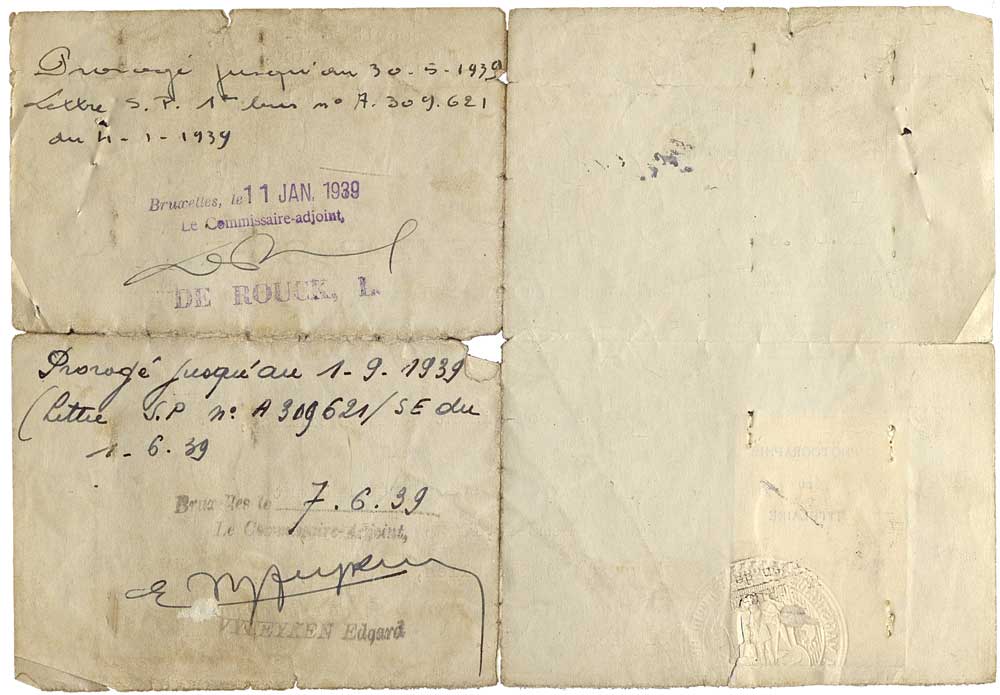 Prorogé jusqu'au 30-5-1939
Lettre S.P. 1er bur n° A.309.621
du 4-1-1939
Bruxelles, le 11 JAN. 1939
Le Commissaire-adjoint,
DE ROUCK, L.
Prorogé jusqu'au 1-9-1939
(Lettre S.P n° A309621/SE du
1-6.39
Bruxelles le 7.6.39
Le Commissaire-Adjoint,
Edgard
PHOTOGRAPHIE
DU
TITULAIRE